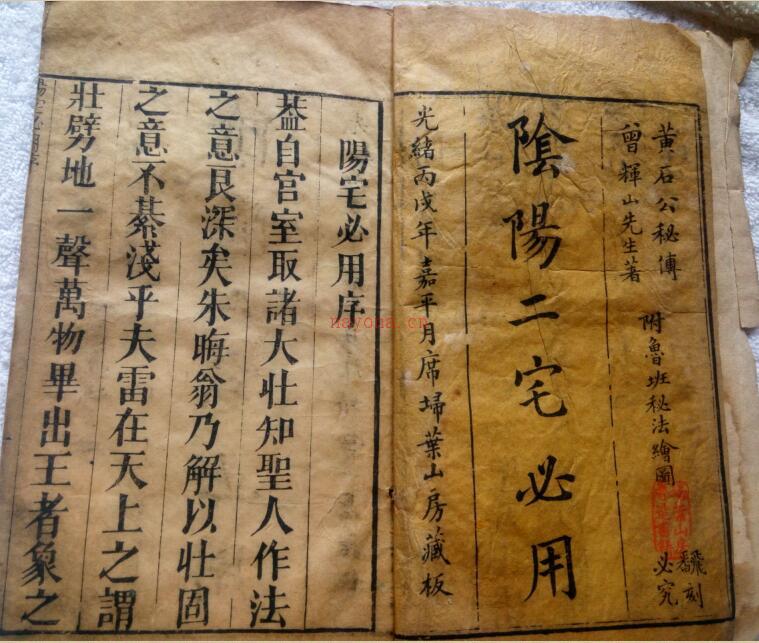 黃石公秘傅
曾輝山先生著
附魯班秘法繪圖
飜刻
必究
陰陽二宅必用
光緒丙戌年嘉平月席埽葉山房藏板
陽宅必用序
葢自官室取諸大壯知聖人作法
之意良深矣朱晦翁乃解以壯固
之意不綦淺乎夫雷在天上之謂
壯劈地一聲萬物畢出王者象之
nayona.cn